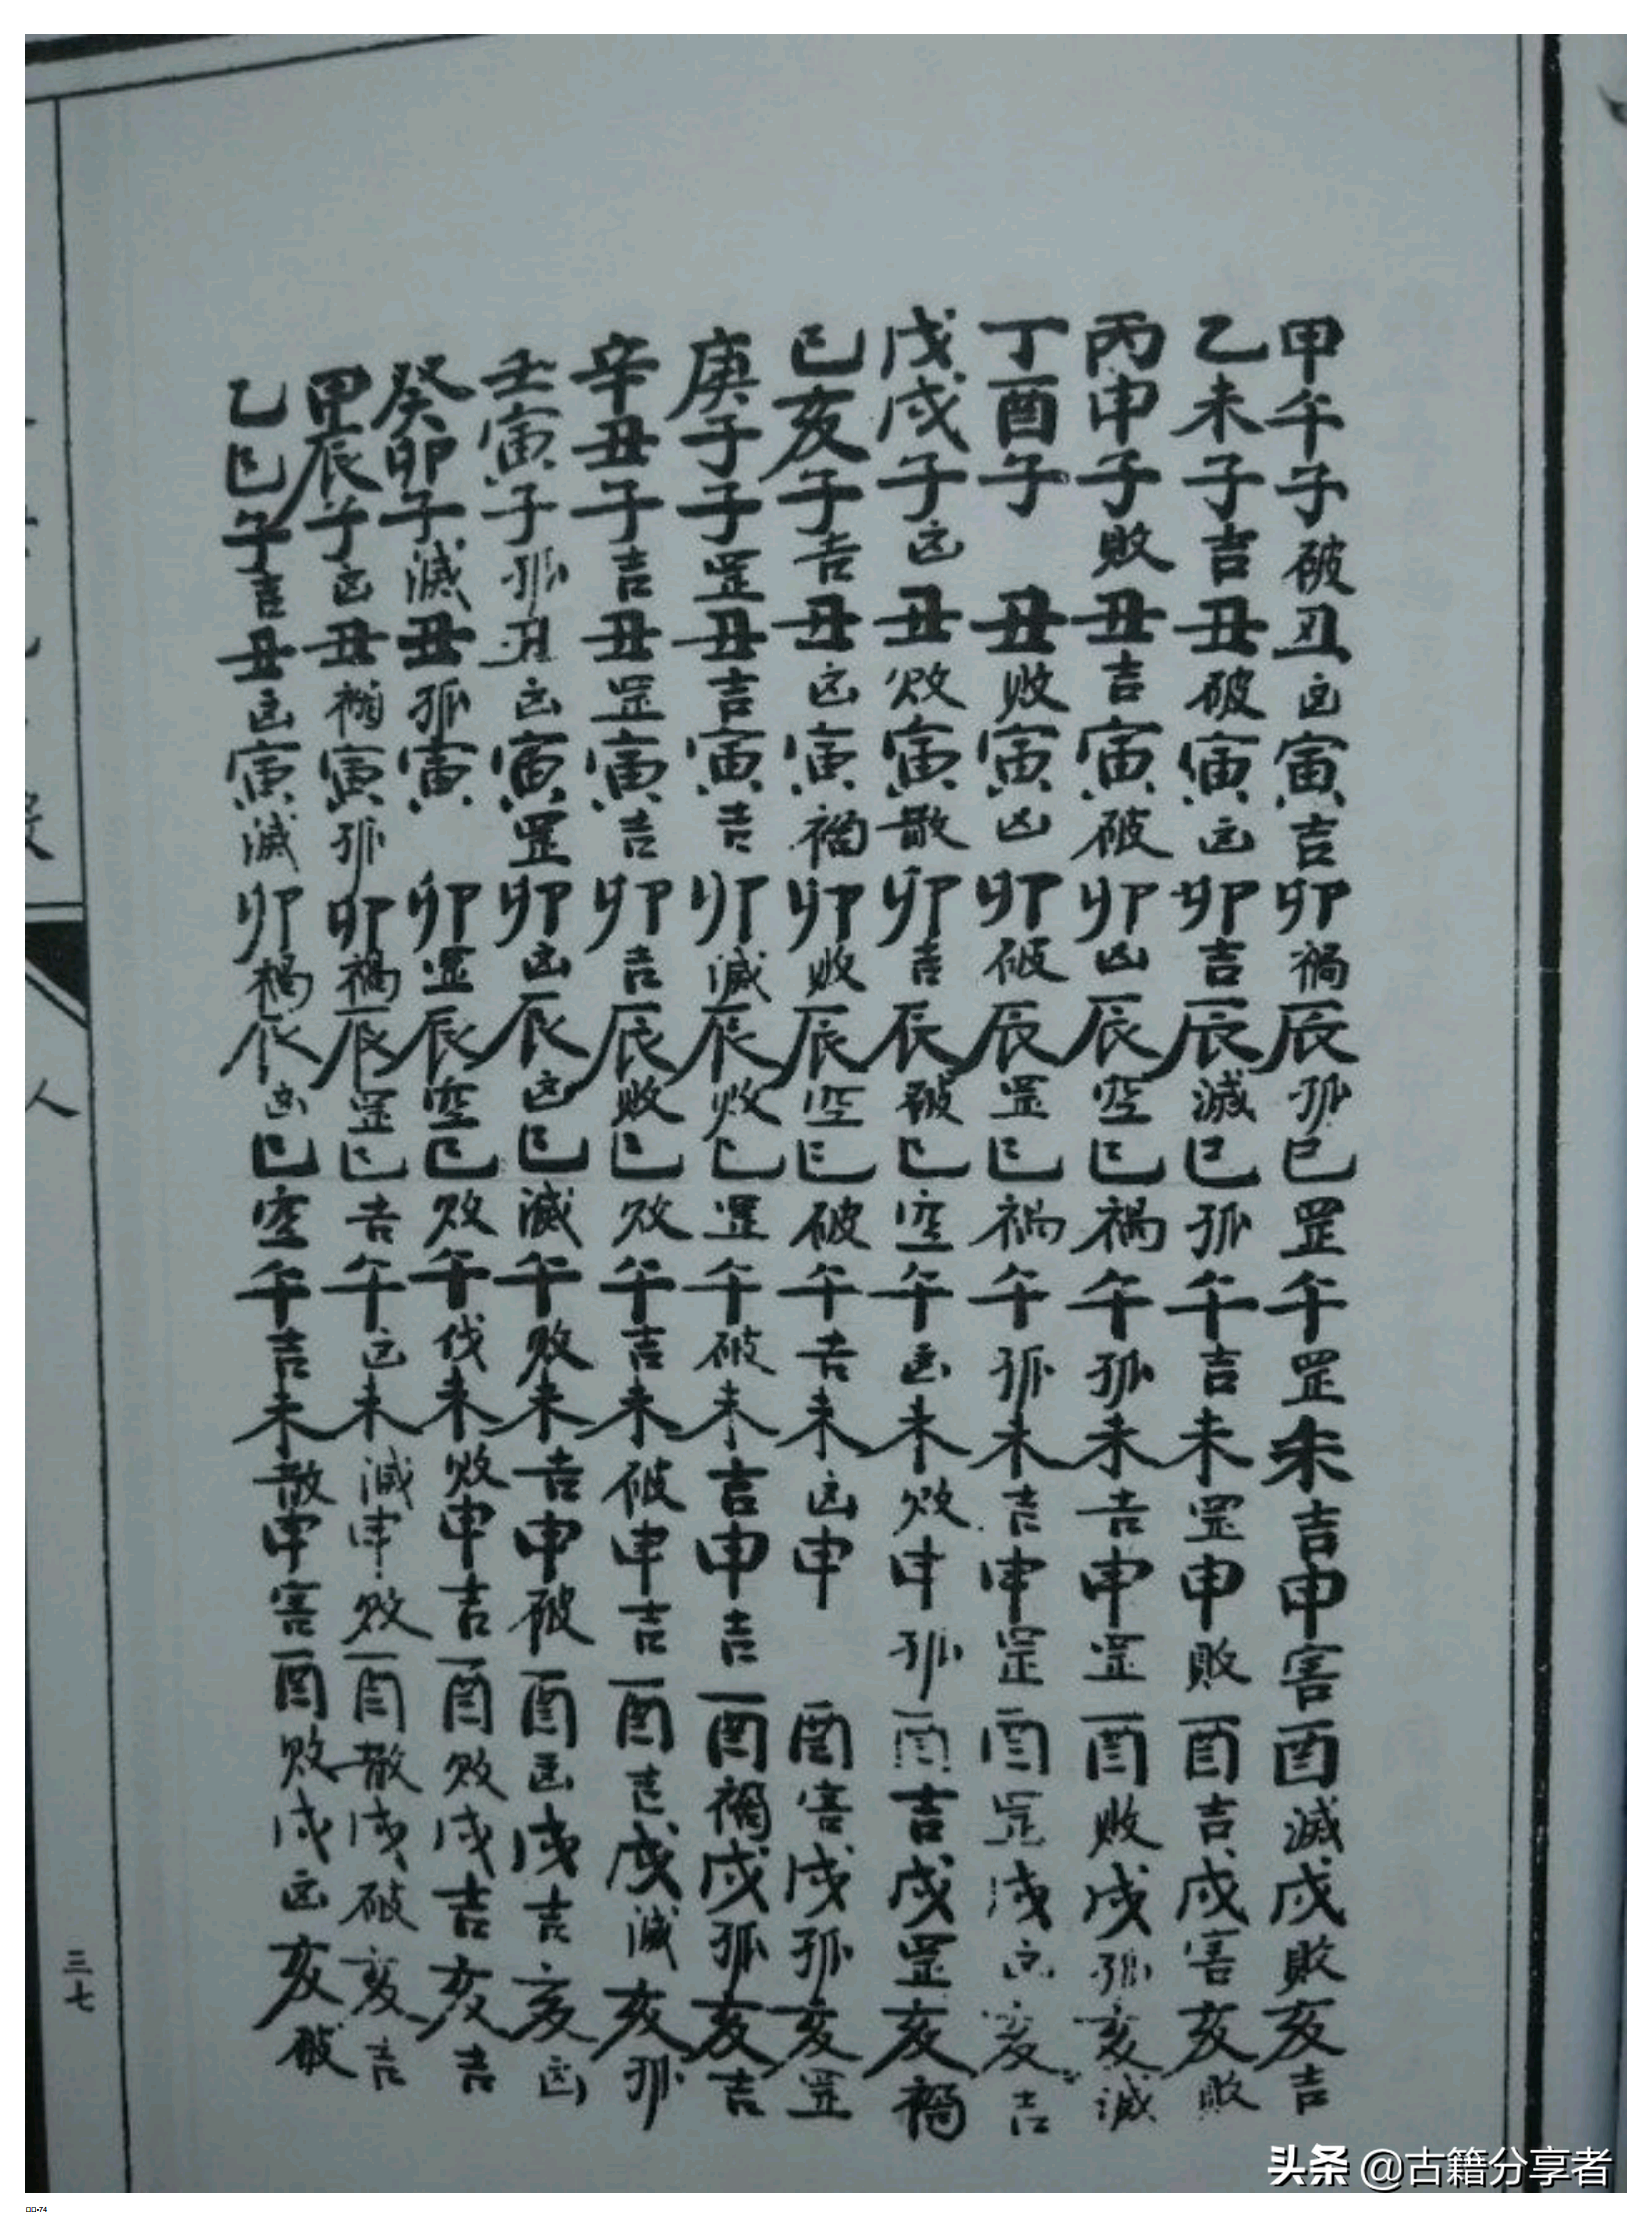 甲午子破丑凶寅吉卯禍辰孤巳罡午罡未吉申害酉滅戌敗亥吉
乙未子吉丑破寅凶卯吉辰滅巳孤午吉未罡申敗酉吉戌害亥敗
丙申子敗丑吉寅破卯凶辰空巳禍午孤未吉申罡酉敗戌孤亥滅
丁酉子丑敗寅凶卯破辰罡巳禍午孤未吉申罡酉罡戌凶亥吉
戊戌子凶丑敗寅散卯吉辰破巳空午凶未敗申孤酉吉戌罡亥禍
己亥子吉丑凶寅禍卯敗辰空巳破午吉未凶申酉害戌孤亥罡
庚子子罡丑吉寅吉卯滅辰敗巳罡午破未吉申吉酉禍戌孤亥吉
辛丑子吉丑罡寅吉卯吉辰敗巳敗午吉未破申吉酉吉戌滅亥孤
壬寅子孤丑凶寅罡卯凶辰凶巳滅午敗未吉申破酉凶戌吉亥凶
癸卯子滅丑孤寅卯罡辰空巳敗午伐未敗申吉酉敗戌吉亥吉
甲辰子凶丑禍寅孤卯禍辰罡巳吉午凶未滅申敗酉散戌破亥吉
乙巳子吉丑凶寅滅卯禍辰凶巳空午吉未散申害酉敗戌凶亥破
三七
人
头条 @古籍分享者